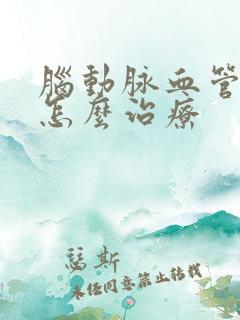 腦動脈血管
怎麼治療
瑟斯
未经同意禁止转载